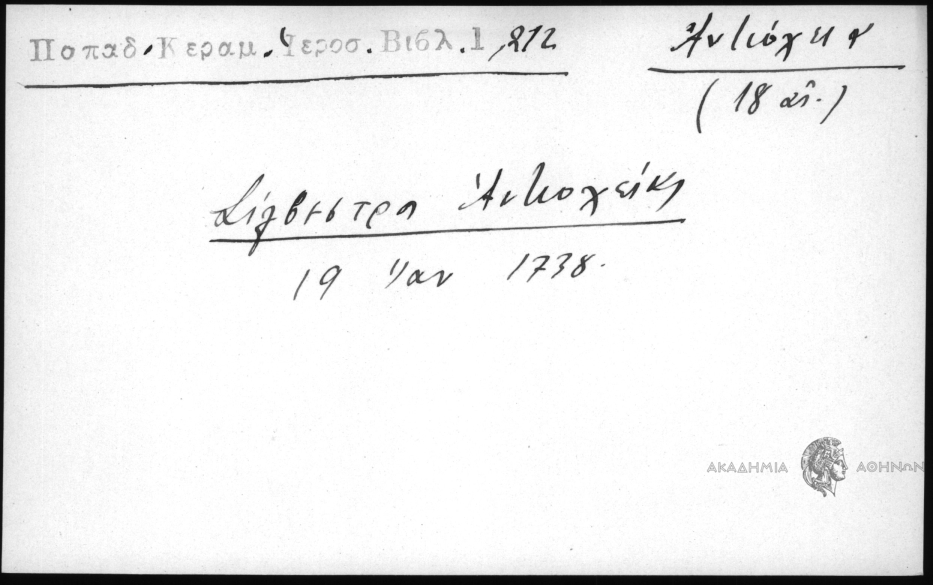 Παπαδ. Κεραμ. Ἱεροσ. Βιβλ. 1, 212
Ἀντιόχεια
(18 αἰ.)
Σιλβέστρου Ἀντιοχείας
19 Ἰαν 1738.
ΑΚΑΔΗΜΙΑ ΑΘΗΝΩΝ